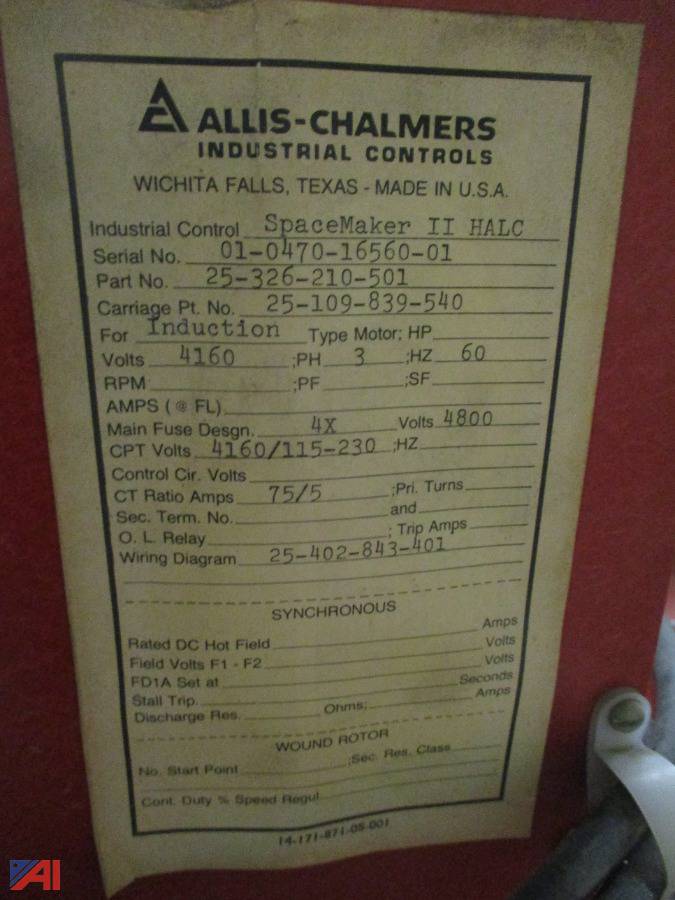 ALLIS-CHALMERS
INDUSTRIAL CONTROLS
WICHITA FALLS, TEXAS - MADE IN U.S.A.
Industrial Control SpaceMaker II HALC
Serial No. 01-0470-16560-01
Part No. 25-326-210-501
Carriage Pt. No. 25-109-839-540
For Induction Type Motor; HP
Volts 4160 ;PH 3 ;HZ 60
RPM ;PF ;SF
AMPS (@ FL)
Main Fuse Desgn. 4X Volts 4800
CPT Volts 4160/115-230 ;HZ
Control Cir. Volts
CT Ratio Amps 75/5 ;Pri. Turns
Sec. Term. No. and
O. L. Relay ; Trip Amps
Wiring Diagram 25-402-843-401
SYNCHRONOUS
Rated DC Hot Field Amps
Field Volts F1 - F2 Volts
FD1A Set at Volts
Stall Trip. Seconds
Discharge Res. Ohms; Amps
WOUND ROTOR
No. Start Point ;Sec. Res. Class
Cont. Duty % Speed Regul.
14-171-871-05-001
AI